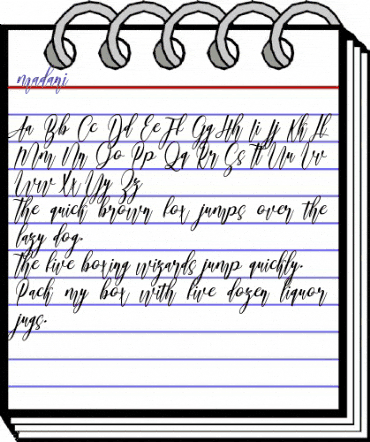 madani
Aa Bb Cc Dd Ee Ff Gg Hh Ii Jj Kk Ll
Mm Nn Oo Pp Qq Rr Ss Tt Uu Vv
Ww Xx Yy Zz
The quick brown fox jumps over the
lazy dog.
The five boxing wizards jump quickly.
Pack my box with five dozen liquor
jugs.